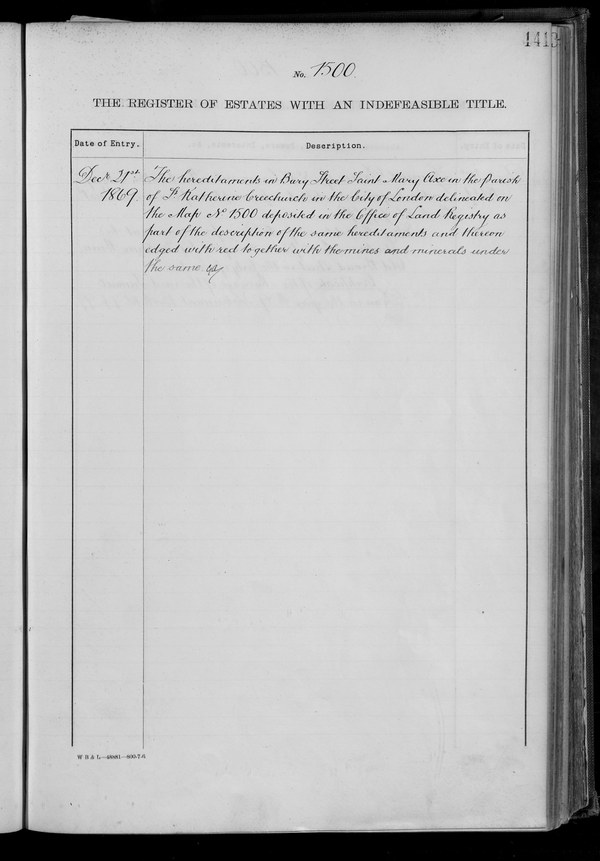 141
No. 1500
THE REGISTER OF ESTATES WITH AN INDEFEASIBLE TITLE.
Date of Entry.
Description.
Decr. 31st
1869
The hereditaments in Bury Street Saint Mary Axe in the Parish
of St. Katherine Creechurch in the City of London delineated on
the Map No 1500 deposited in the Office of Land Registry as
part of the description of the same hereditaments and thereon
edged with red together with the mines and minerals under
the same
W B & L—